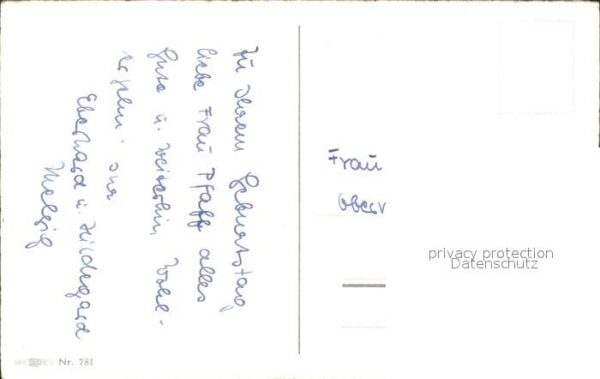 Zu Ihrem Geburtstag
liebe Frau Pfaff alles
Gute u. weiterhin Wohl-
ergehn! Ihre
Eberhard u. Hildegard
Frau
Oberv
privacy protection
Datenschutz
Nr. 781